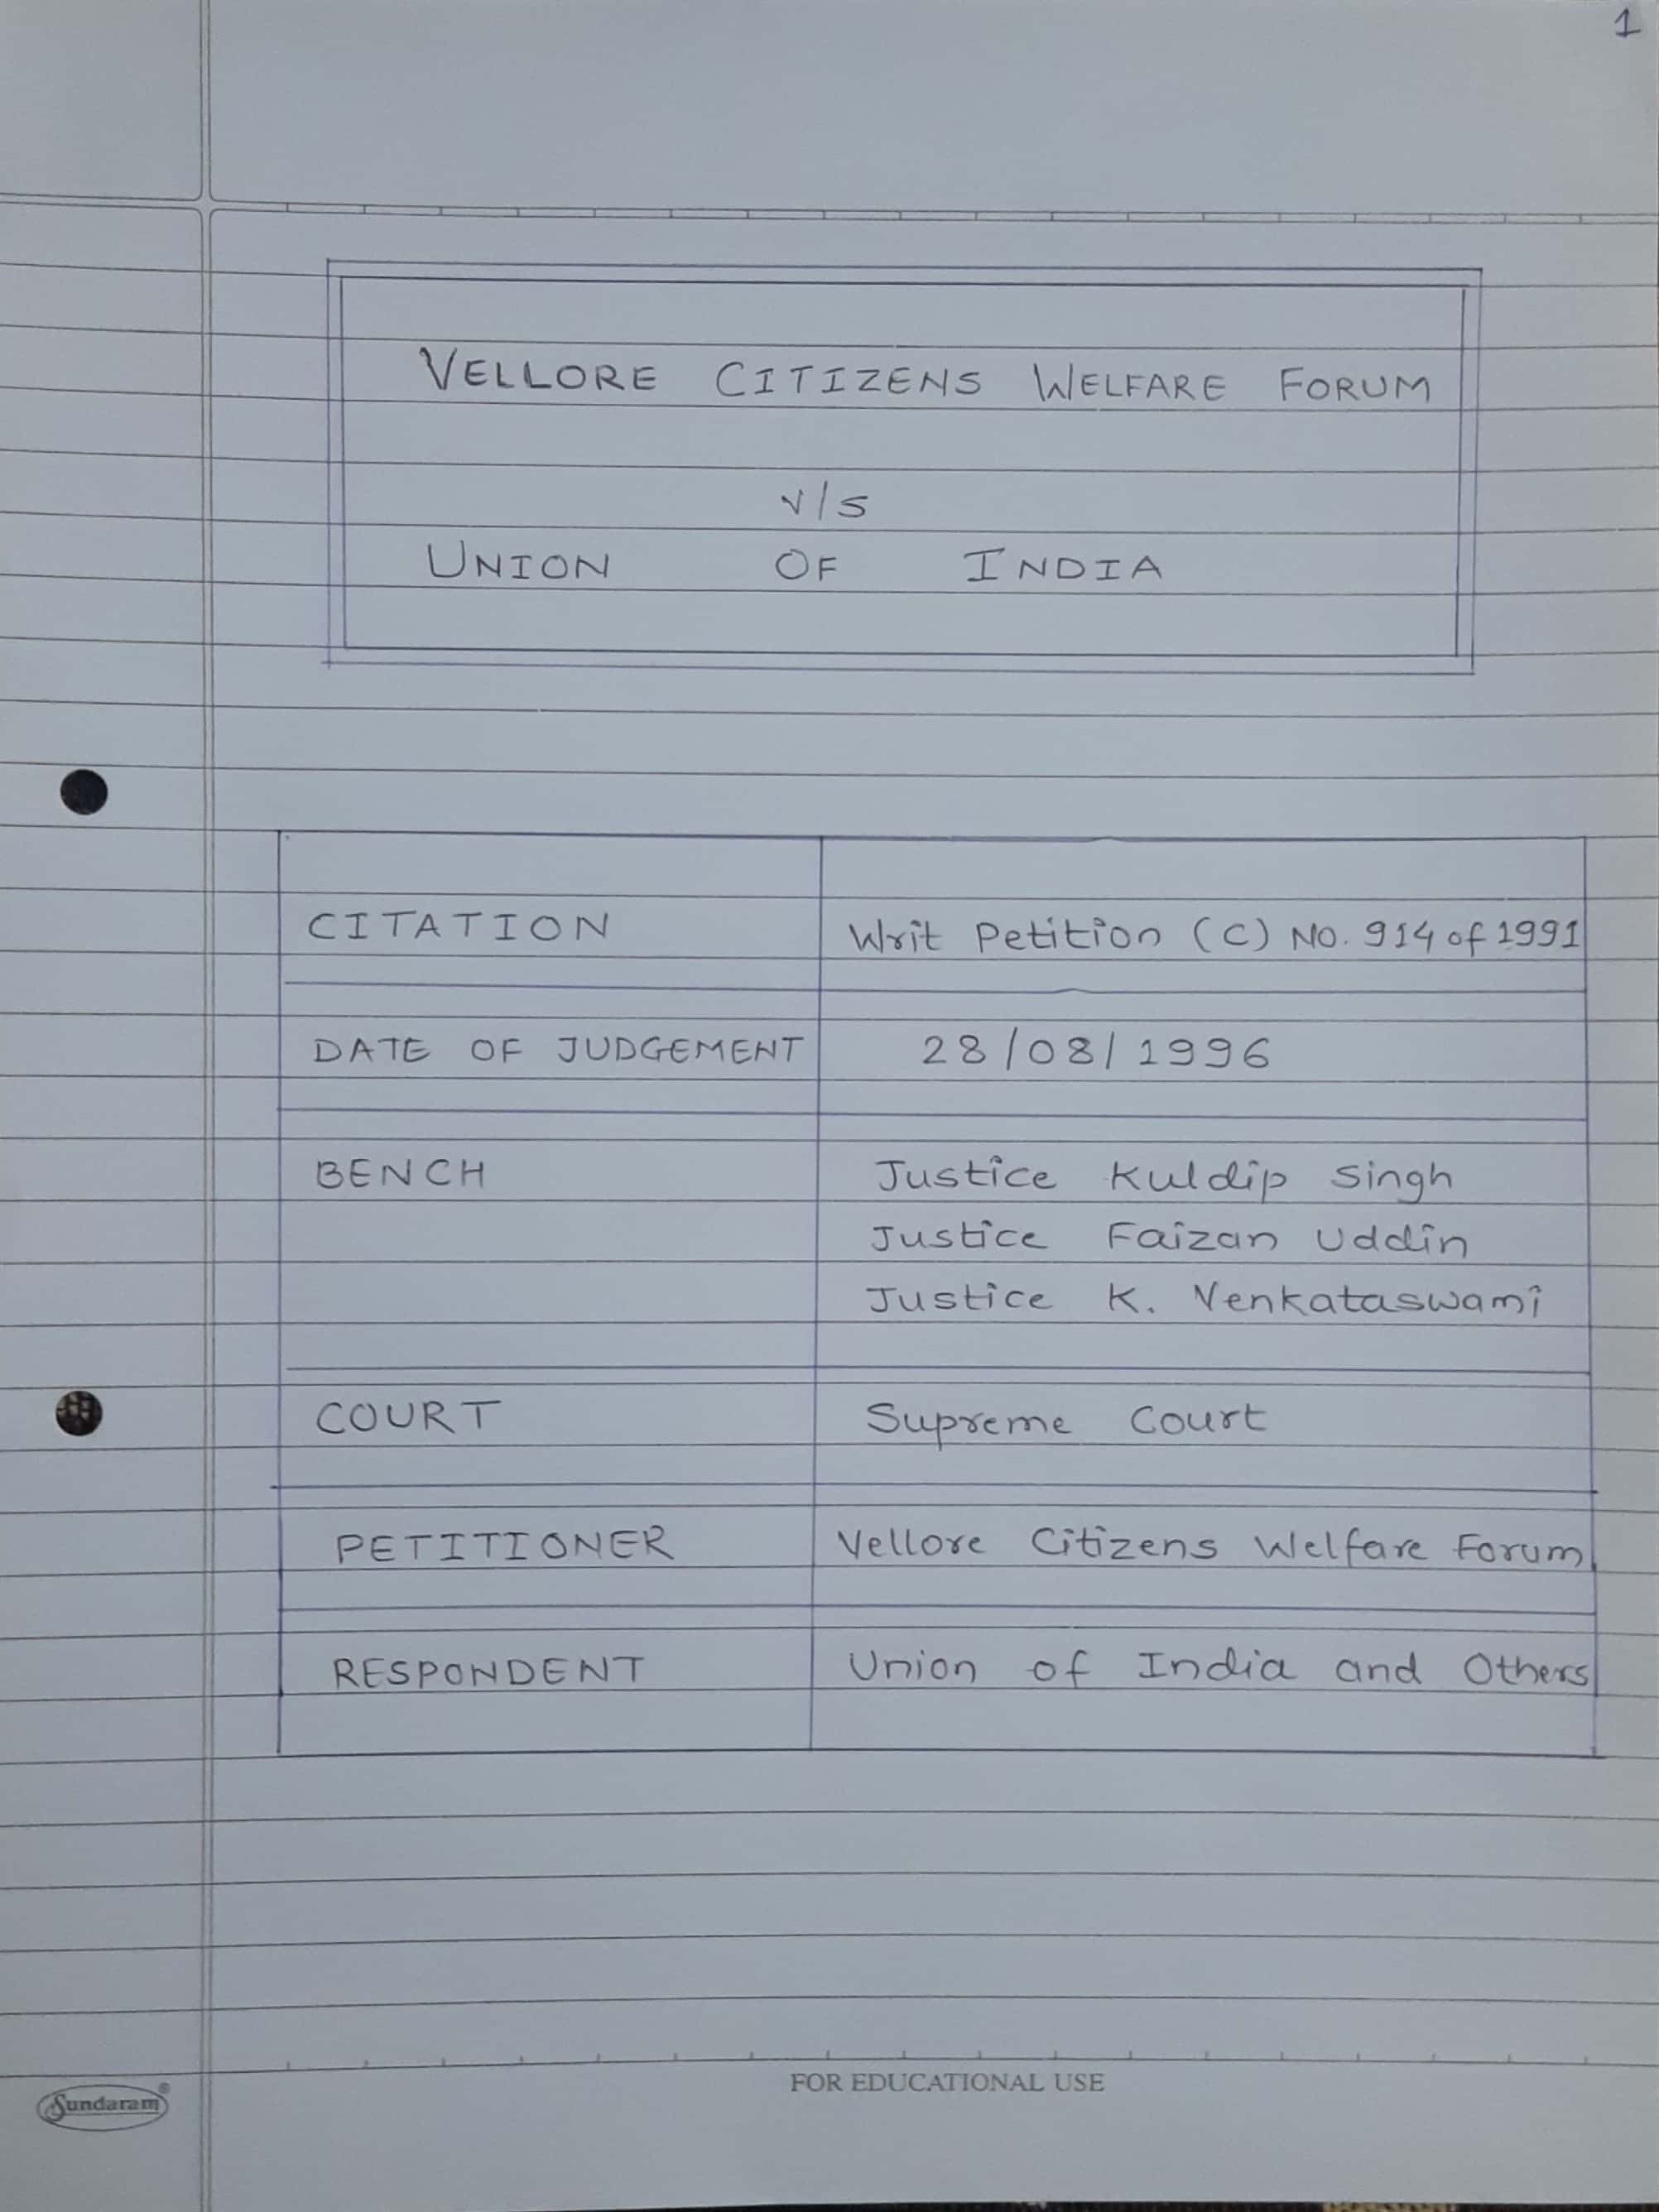 1
VELLORE CITIZENS WELFARE FORUM
v/s
UNION OF INDIA
CITATION Writ Petition (C) NO. 914 of 1991
DATE OF JUDGEMENT 28/08/1996
BENCH Justice Kuldip Singh
Justice Faizan Uddin
Justice K. Venkataswami
COURT Supreme Court
PETITIONER Vellore Citizens Welfare Forum
RESPONDENT Union of India and Others
FOR EDUCATIONAL USE
Sundaram®